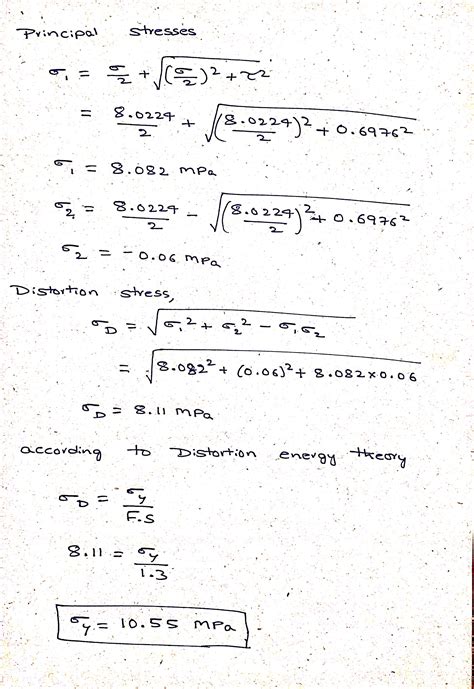 Principal stresses
σ₁ = σ/2 + √((σ/2)² + τ²)
= 8.0224/2 + √((8.0224/2)² + 0.6976²)
σ₁ = 8.082 mPa
σ₂ = 8.0224/2 - √((8.0224/2)² + 0.6976²)
σ₂ = -0.06 mPa
Distortion stress,
σD = √(σ₁² + σ₂² - σ₁σ₂)
= √(8.082² + (0.06)² + 8.082×0.06)
σD = 8.11 mPa
according to Distortion energy theory
σD = σy/F.S
8.11 = σy/1.3
σy = 10.55 mPa